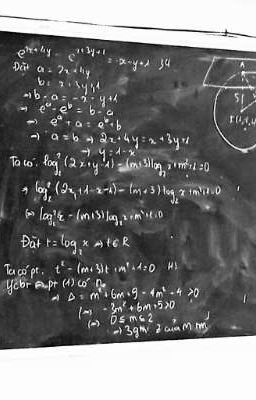 e^{2x+4y} - e^{x+3y+1} = -x-y+1
Đặt a = 2x+4y
b = x+3y+1
⇒ b-a = -x-y+1
⇒ e^a - e^b = b-a
⇒ e^a + a = e^b + b
⇒ a = b ⇒ 2x+4y = x+3y+1
⇒ y = 1-x
Ta có: log₂²(2x+y-1) - (m+3)log₂x + m²+1 = 0
⇒ log₂²(2x+1-x-1) - (m+3)log₂x + m²+1 = 0
⇔ log₂²x - (m+3)log₂x + m²+1 = 0
Đặt t = log₂x ⇒ t ∈ R
Ta có pt. t² - (m+3)t + m²+1 = 0 (1)
Ycbt pt (1) có n₀
⇒ Δ = m²+6m+9-4m²-4 ≥0
⇔ -3m²+6m+5 ≥0
⇔ 0 ≤ m ≤ 2
⇒ 3 gtrị của m